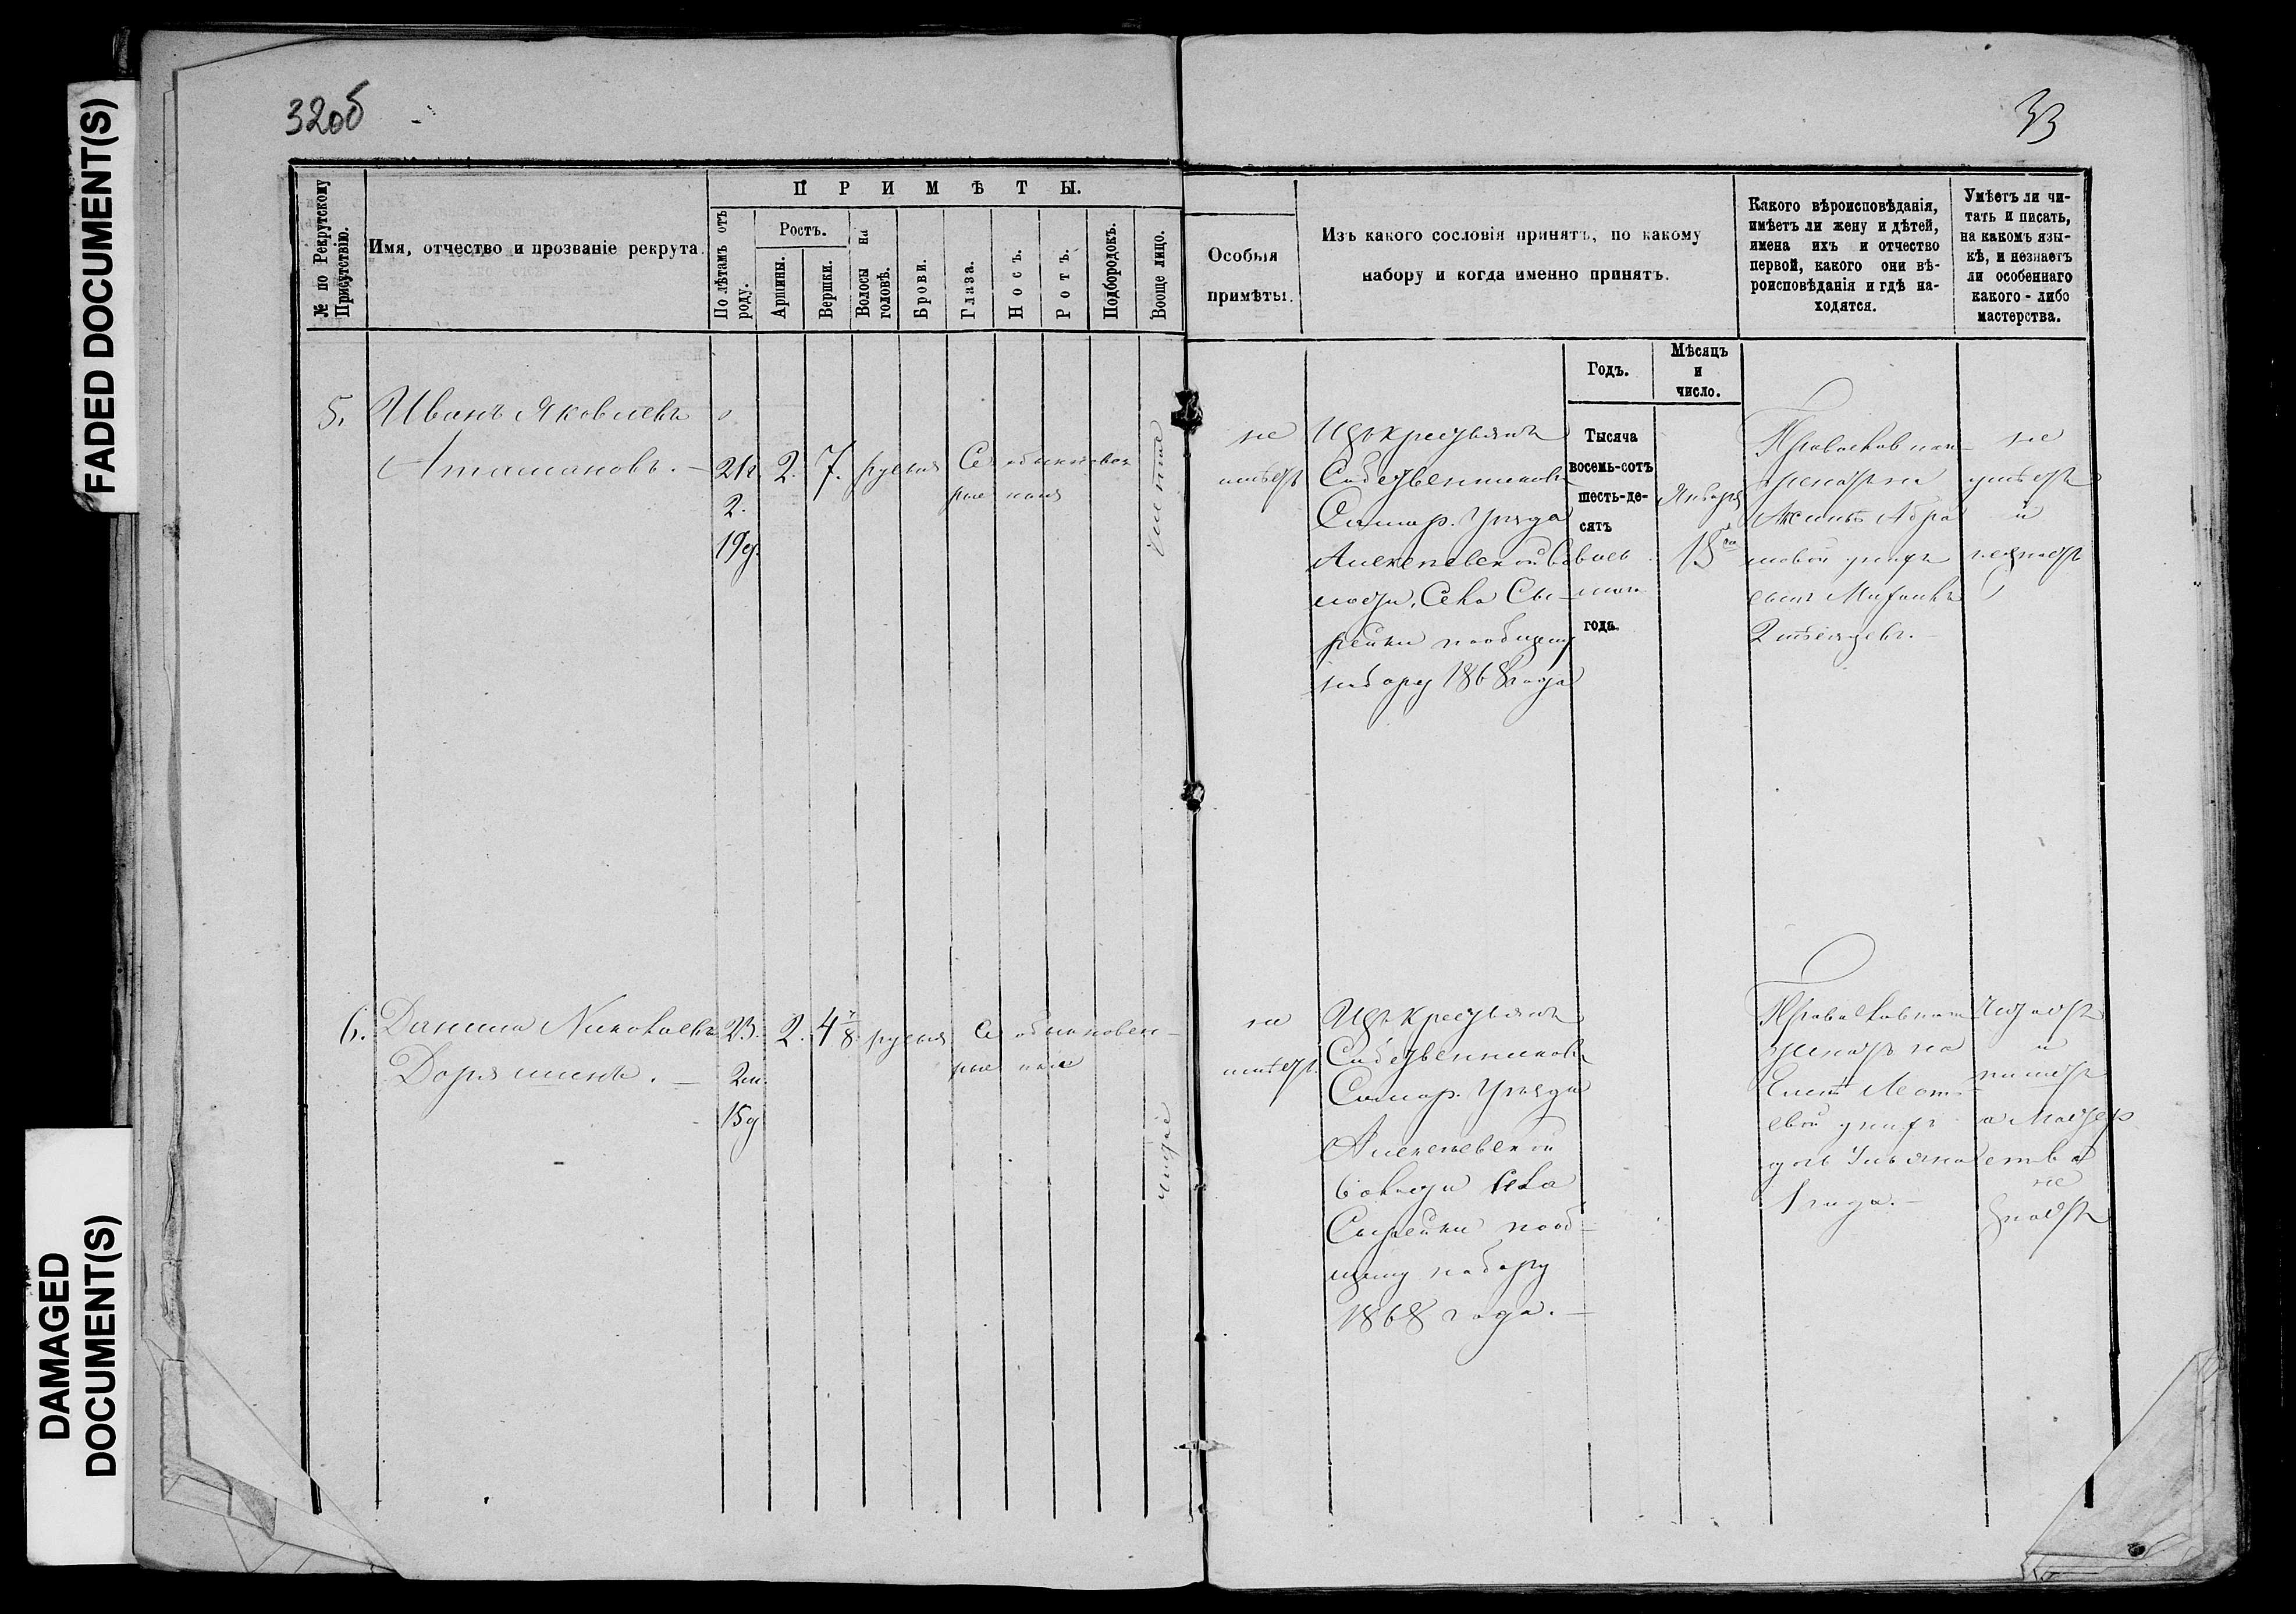 FADED DOCUMENT(S)
DAMAGED
DOCUMENT(S)
32об
33
№ по Рекрутскому
Присутствію.
Имя, отчество и прозваніе рекрута.
ПРИМѢТЫ.
По лѣтамъ отъ
роду.
Ростъ.
Аршины.
Вершки.
Волосы на
головѣ.
Брови.
Глаза.
Носъ.
Ротъ.
Подбородокъ.
Вообще лицо.
Особыя
примѣты.
Изъ какого сословія принятъ, по какому
набору и когда именно принятъ.
Какого вѣроисповѣданія,
имѣетъ ли жену и дѣтей,
имена ихъ и отчество
первой, какого они вѣ-
роисповѣданія и гдѣ на-
ходятся.
Умѣетъ ли чи-
тать и писать,
на какомъ язы-
кѣ, и незнаетъ
ли особеннаго
какого-либо
мастерства.
Годъ.
Мѣсяцъ
и
число.
5.
Иванъ Яковлевъ
Атамановъ.
21г
2.
19д.
2.
7.
русыя
Се
рыя
обыкновен
ныя
не
имѣетъ
Изъ крестьянъ
Собственниковъ
Самар. Уѣзда
Алексѣевской Во
лости, Села Сы-
рейки пообщему
набору 1868 года
Тысяча
восемь-сотъ
шесть-де-
сятъ
вось
маго
года.
Января
18го
Православнаго
женатъ на
Аннѣ Абра
мовой у нихъ
сынъ
2 мѣсяцевъ.
не
умѣетъ
и
незнаетъ
6.
Данила Николаевъ
23.
2м.
15д
2.
4 7/8
русыя
Се
рые
обыкновен-
ные
не
имѣетъ.
Изъ крестьянъ
Собственниковъ
Самар. Уѣзда
Алексѣевской
Волости Села
Сырейки пооб-
щему набору
1868 года.
Православнаго
женатъ на
Еленѣ
евой у нихъ
дочь Ульяна
1 года.
Читаетъ
и
пишетъ
а Мастер
ства
не
знаетъ